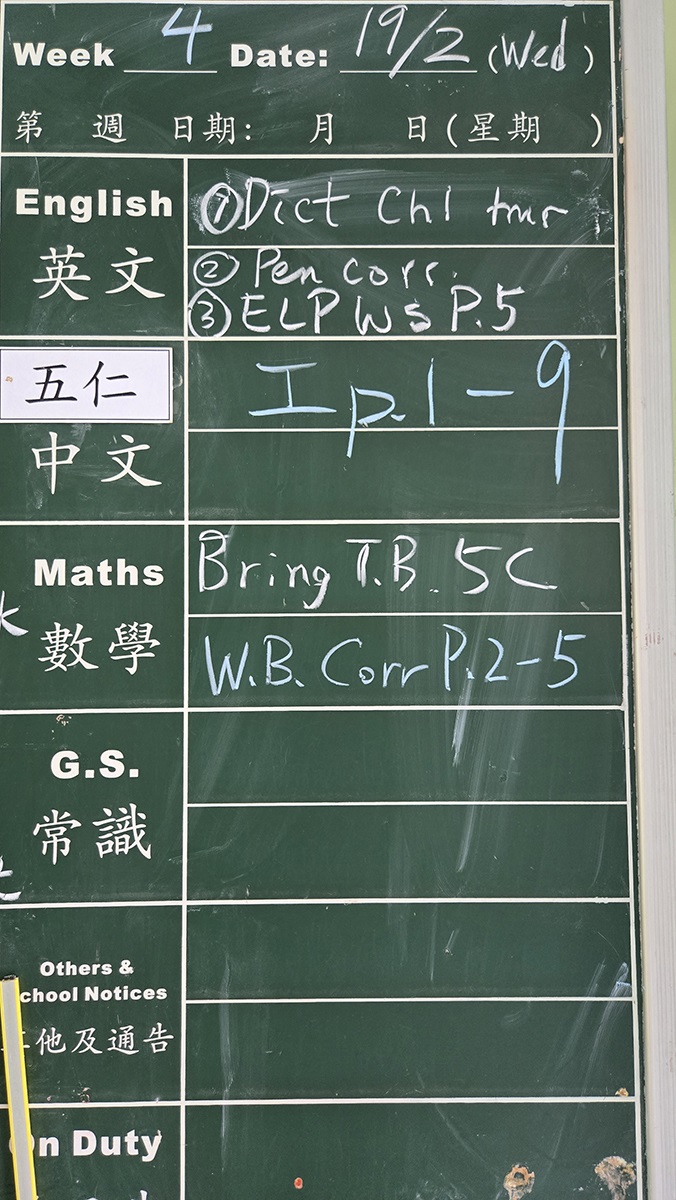 Week 4 Date: 19/2 (Wed)
第 週 日期: 月 日(星期 )
English ①Dict Ch1 tmr
英文 ② Pen corr.
③ ELP WS P.5
五仁 I p.1-9
中文
Maths Bring T.B. 5C
數學 W.B. Corr P.2-5
G.S.
常識
Others &
chool Notices
他及通告
n Duty